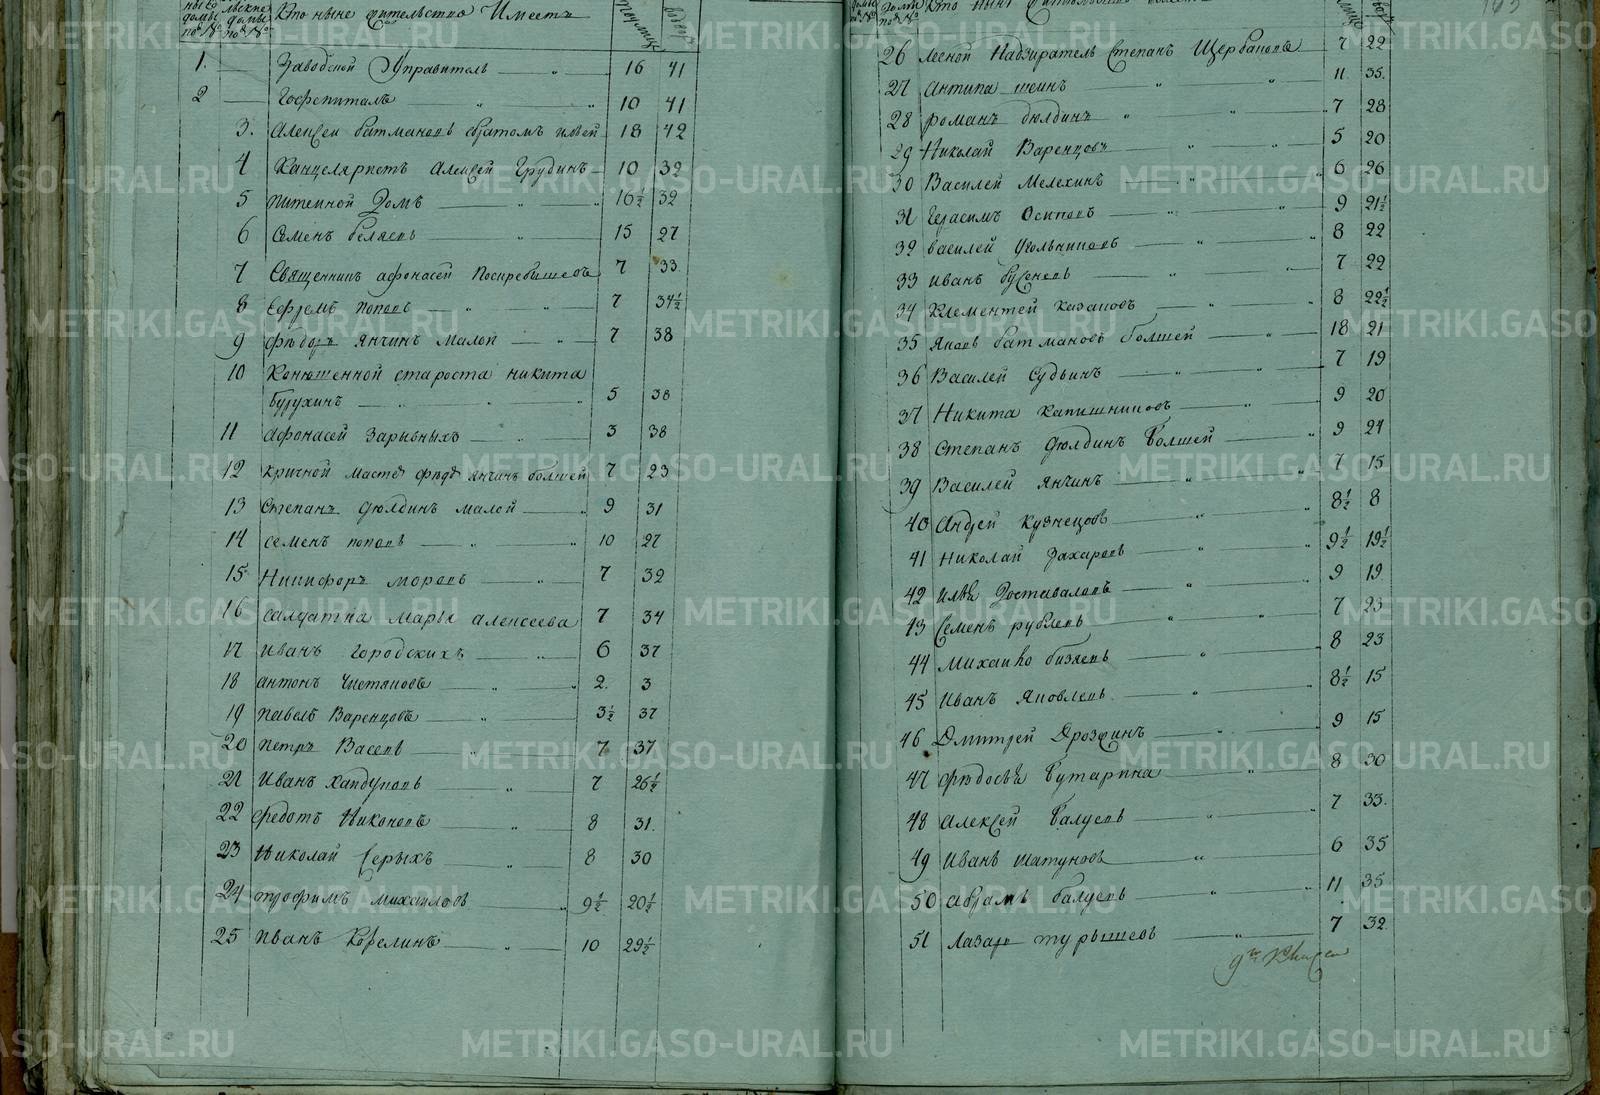 Кто ныне жительство Имеетъ
домы
по №
домы
по №
1. Заводской Управитель — „ — 16 41
2 — Гофспиталь — „ — „ 10 41
3. Алексей батмановъ збратомъ ильей 18 42
4 Канцеляристъ Алексей Грубинъ — 10 32
5 Питейной Домъ — „ — „ 16½ 32
6 Семенъ беляевъ — „ — 15 27
7 Священникъ афонасей Поскребышевъ 7 33
8 Ефремъ поповъ — „ — „ 7 34½
9 Фѣдоръ Янчинъ Малой — „ — 7 38
10 Конюшенной староста никита
Бурухинъ — „ — „ — „ 5 38
11 Афонасей Зарывныхъ — „ — 3 38
12 кричной мастеръ Янчинъ болшей 7 23
13 Степанъ Дюлдинъ малой — „ 9 31
14 семенъ поповъ — „ — „ 10 27
15 Никифоръ — „ — 7 32
16 Салдатка Марья алексеева 7 34
17 Иванъ Городскихъ — „ 6 37
18 антонъ Чистяковъ — „ — 2. 3
19 павелъ Варенцовъ — „ — 3½ 37
20 петръ Васевъ — „ — 7 37
21 Иванъ — „ — 7 26½
22 Федотъ Никоновъ — „ — 8 31.
23 Николай Серыхъ — „ — 8 30
24 трофимъ михайловъ — „ 9½ 20½
25 иванъ Корелинъ — „ — 10 29½
26 лесной Надзиратель Степанъ Щербаковъ — 7 22
27 Антипа шеинъ — „ — „ 11 35.
28 романъ дюлдинъ — „ — 7 28
29 Николай Варенцовъ — „ — „ 5 20
30 Василей Мелехинъ — „ — 6 26
31 Герасимъ Осиповъ — „ — „ 9 21½
32 василей Угольниковъ — „ — 8 22
33 иванъ — „ — „ 7 22
34 Клементей казаковъ — „ — 8 22½
35 Яковъ батмановъ болшей — „ — 18 21
36 Василей Судьинъ — „ — „ 7 19
37 Никита Капишниковъ — „ — 9 20
38 Степанъ Дюлдинъ болшей — „ 9 24
39 Василей Янчинъ — „ — „ 7 15
40 Андрей Кузнецовъ — „ — 8½ 8
41 Николай Захаровъ — „ — 9½ 19½
42 Илья Доставаловъ — „ — 9 19
43 Семенъ рублевъ — „ — „ 7 23
44 Михайло бизяевъ — „ — 8 23
45 Иванъ Яковлевъ — „ — 8½ 15
46 Дмитрей Дрозжинъ — „ — 9 15
47 Фѣдосья Бутарина — „ — 8 30
48 Алексей Балуевъ — „ — 7 33.
49 Иванъ шатуновъ — „ — 6 35
50 абрамъ балуевъ — „ — 11 35
51 Лазарь турышевъ — „ — 7 32
METRIKI.GASO-URAL.RU